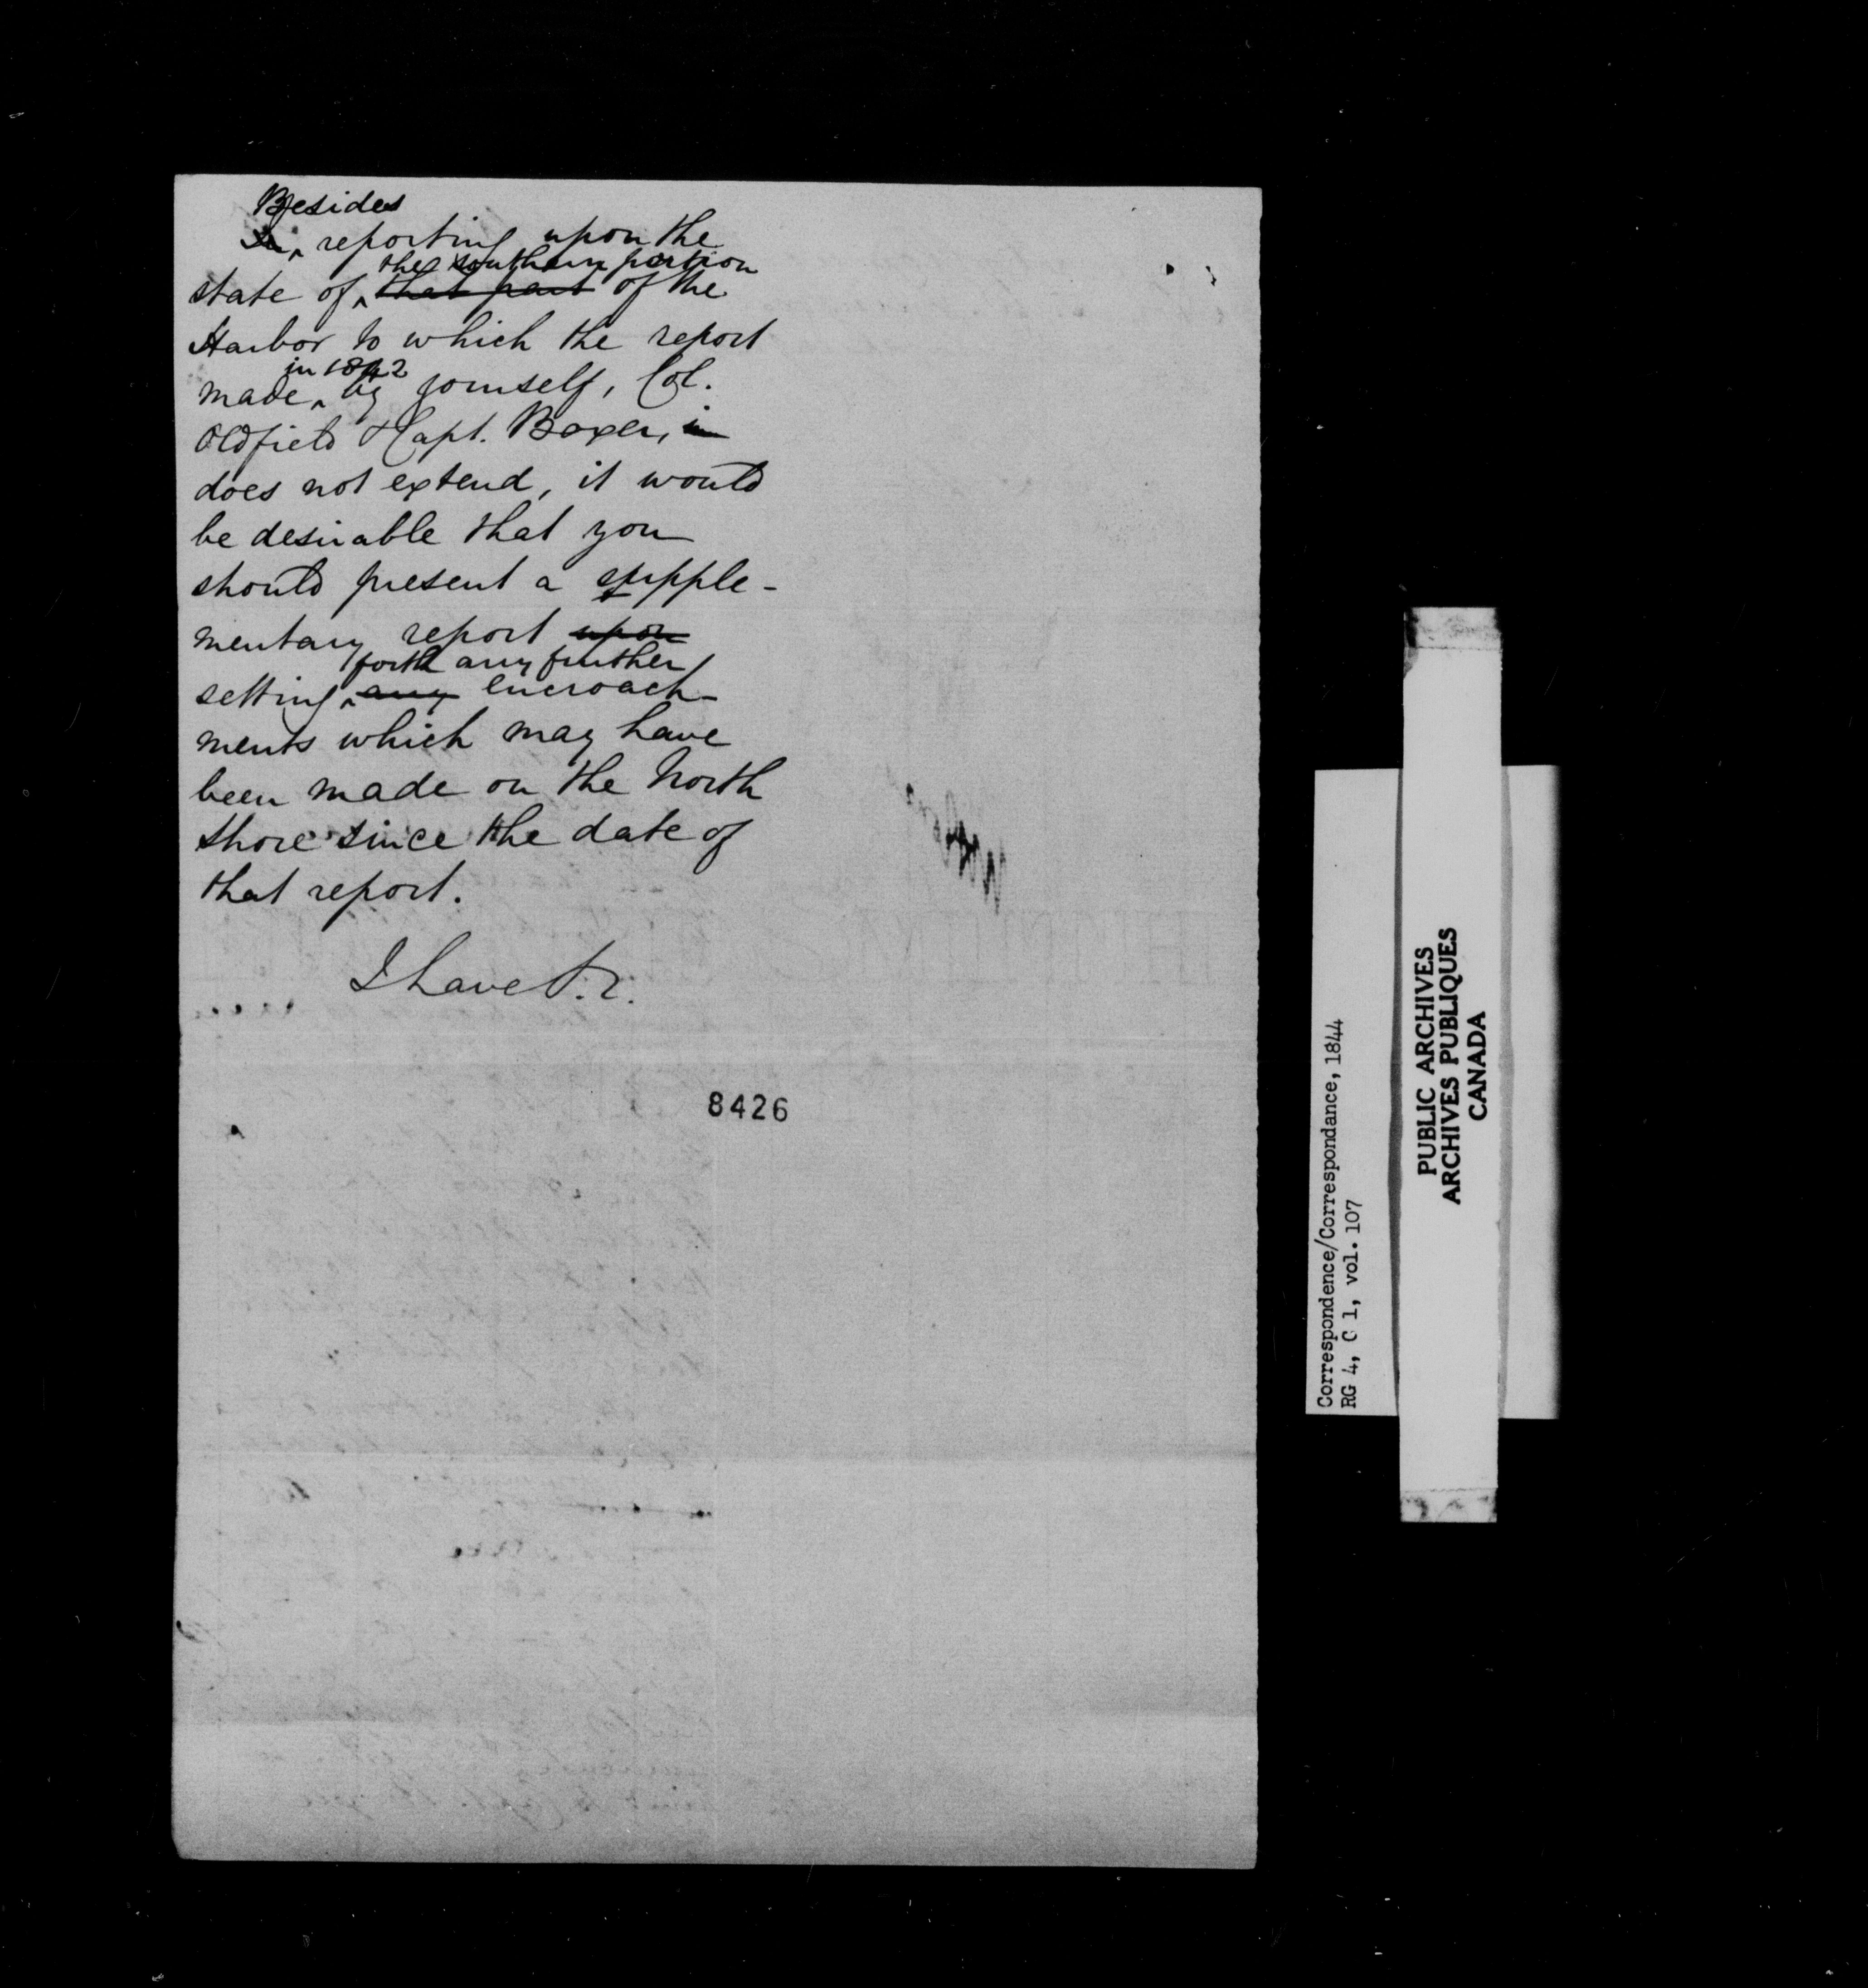 Besides
In ^ reporting upon the
the southern portion
state of ^ that part of the
Harbor to which the report
in 1842
made ^ by yourself, Col.
Oldfield & Capt. Boxer, in
does not extend, it would
be desirable that you
should present a supple-
mentary report upon
forth any further
setting ^ any encroach-
ments which may have
been made on the North
Shore since the date of
that report.
I have &.
8426
Correspondence/Correspondance, 1844
RG 4, C 1, vol. 107
PUBLIC ARCHIVES
ARCHIVES PUBLIQUES
CANADA